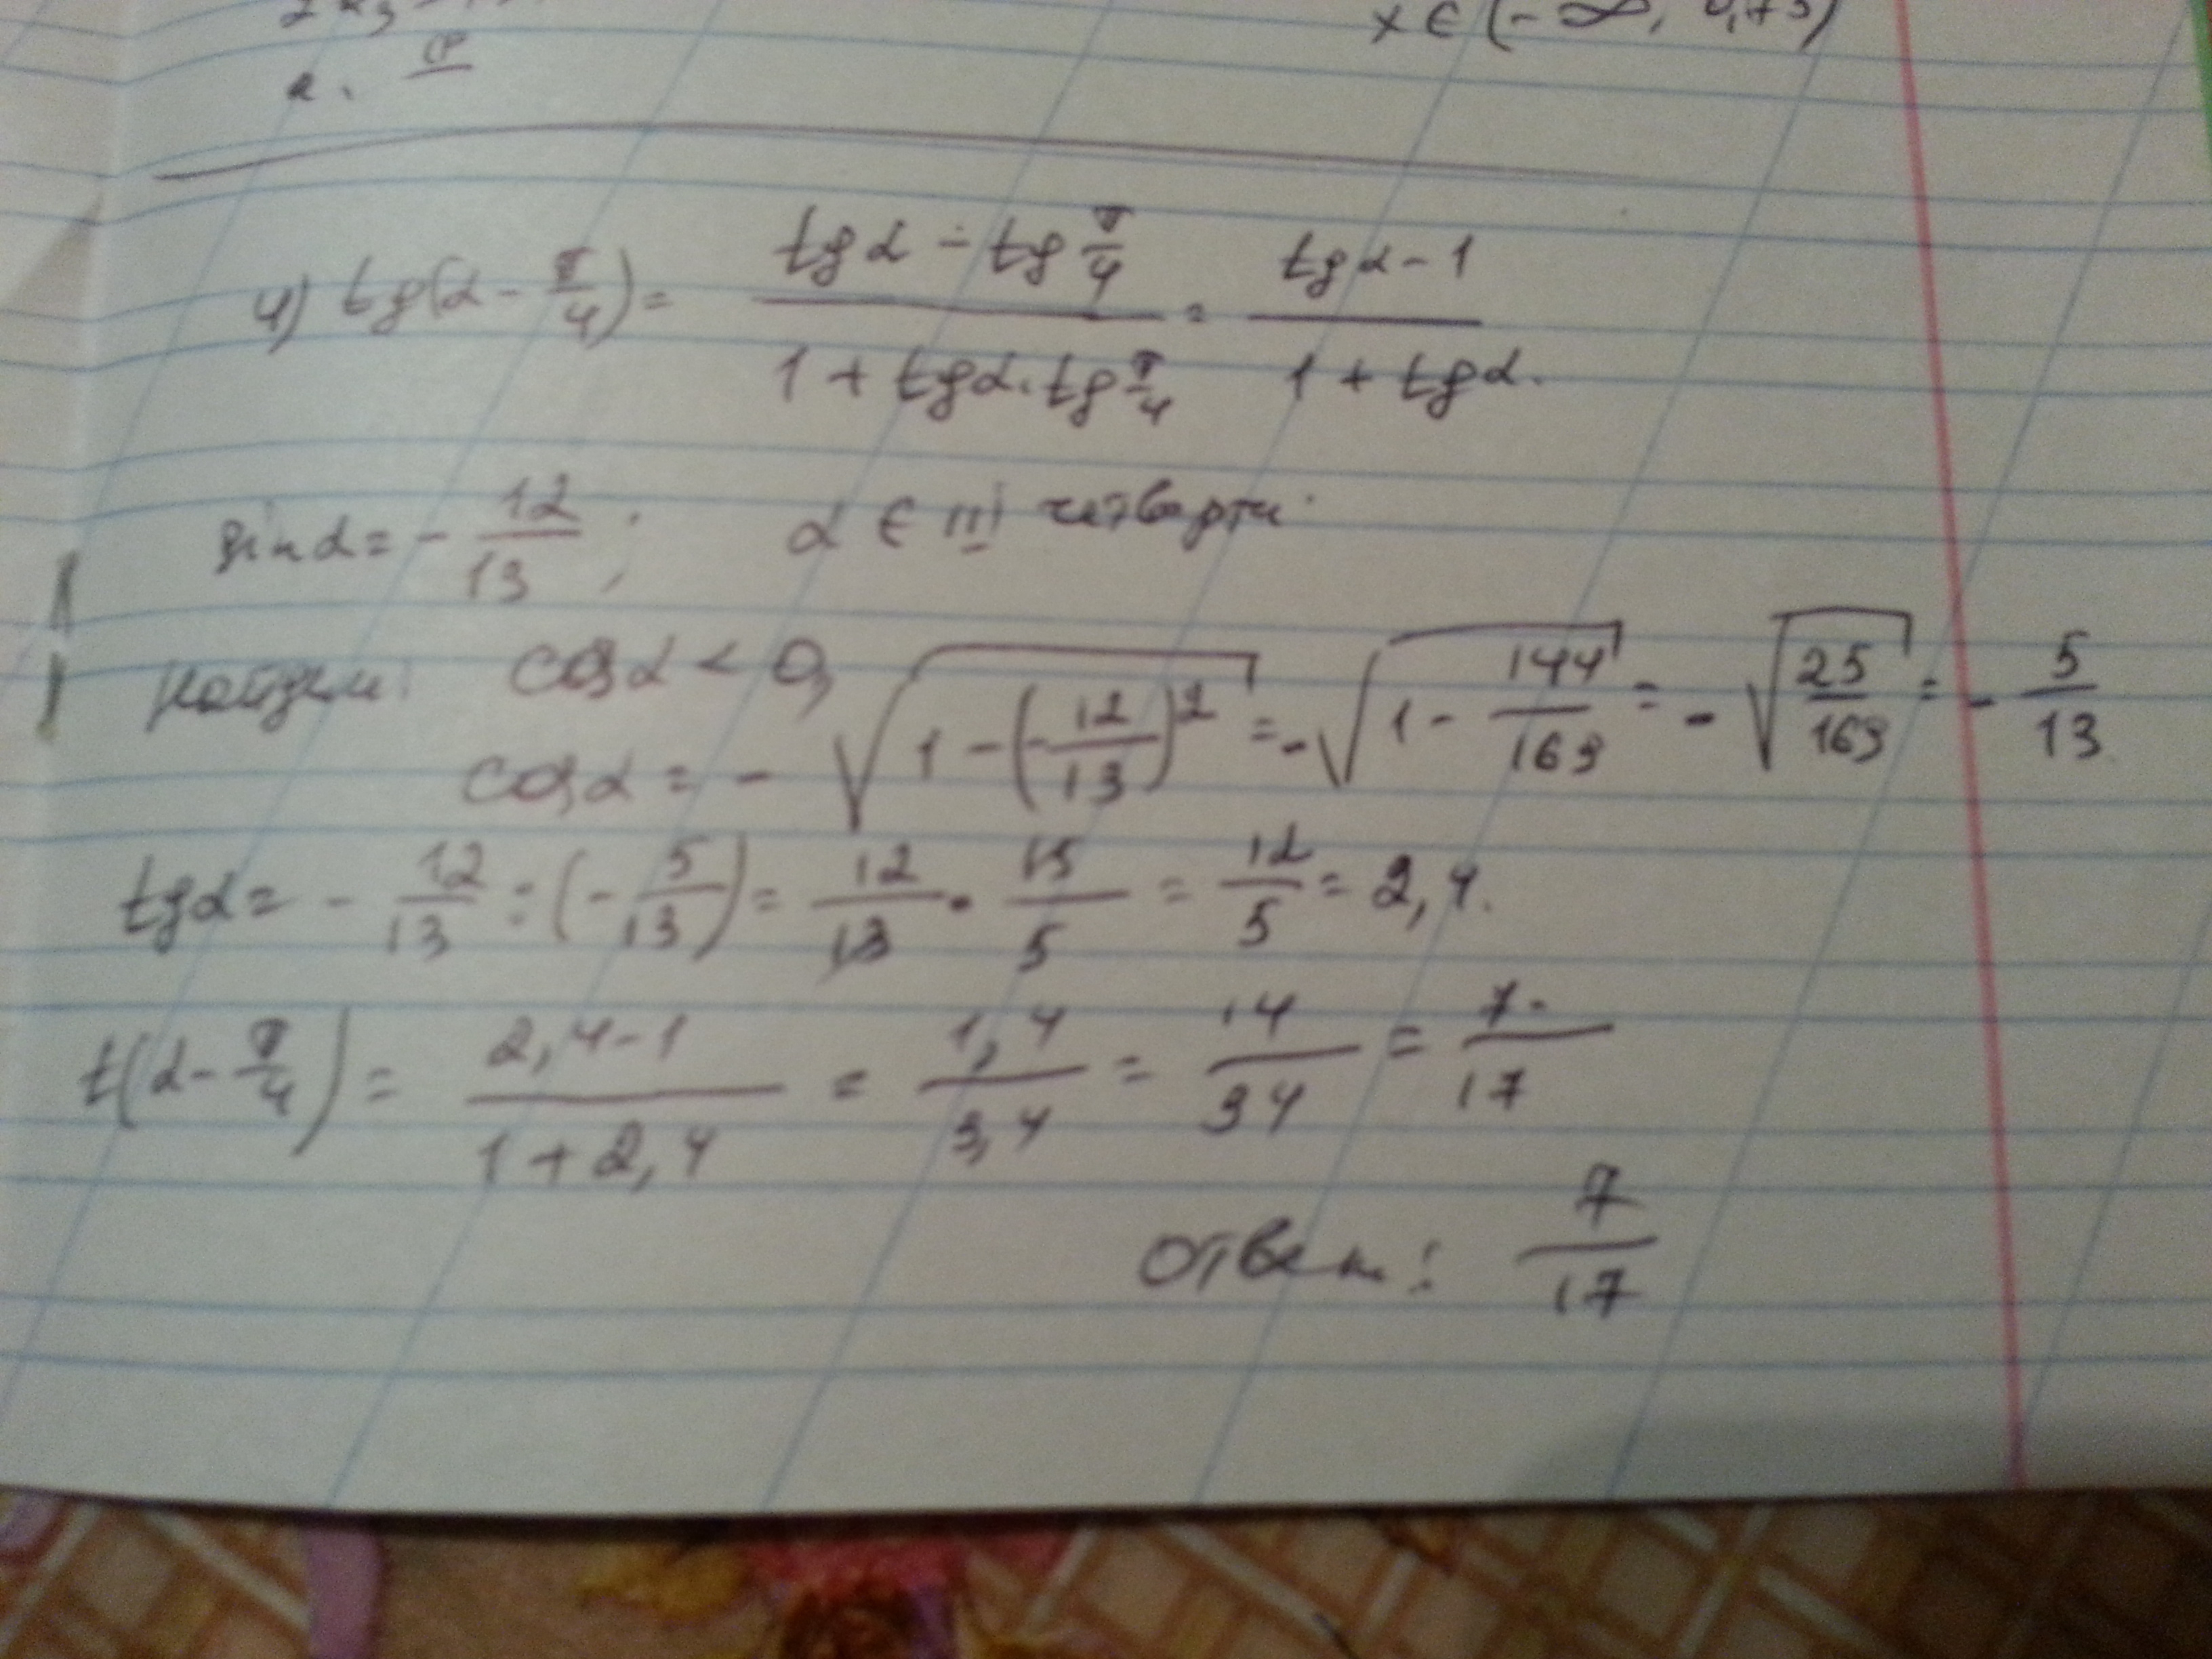 x ∈ (-∞,
4) tg(α - π/4) = (tg α - tg π/4)/(1 + tg α · tg π/4) = (tg α - 1)/(1 + tg α.
sin α = - 12/13; α ∈ III четверти.
найдем: cos α < 0,
cos α = - √(1 - (-12/13)²) = - √(1 - 144/169) = - √(25/169) = - 5/13
tg α = - 12/13 : (- 5/13) = 12/13 · 13/5 = 12/5 = 2,4.
t(α - π/4) = (2,4-1)/(1+2,4) = 1,4/3,4 = 14/34 = 7/17
Ответ: 7/17